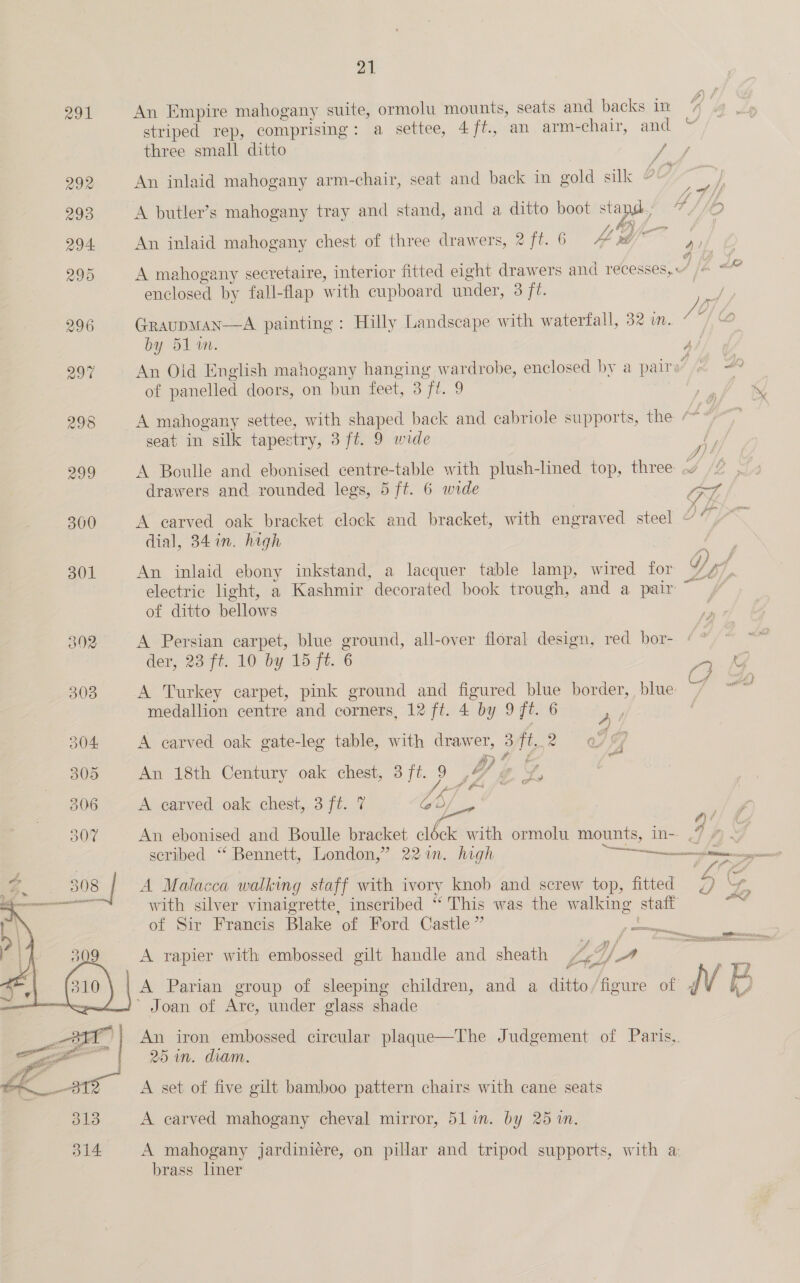 21
291 An Empire mahogany suite, ormolu mounts, seats and backs in
striped rep, comprising: a settee, 4 ft., an arm-chair, and
three small ditto
292 An inlaid mahogany arm-chair, seat and back in gold silk
293 A butler's mahogany tray and stand, and a ditto boot stand
294 An inlaid mahogany chest of three drawers, 2 ft. 6
295 A mahogany secretaire, interior fitted eight drawers and recesses,
enclosed by fall-flap with cupboard under, 3 ft.
296 GRAUPMAN—A painting: Hilly Landscape with waterfall, 32 in.
by 51 in.
297 An Old English mahogany hanging wardrobe, enclosed by a pair
of panelled doors, on bun feet, 3 ft. 9
298 A mahogany settee, with shaped back and cabriole supports, the
seat in silk tapestry, 3 ft. 9 wide
299 A Boulle and ebonised centre-table with plush-lined top, three
drawers and rounded legs, 5 ft. 6 wide
300 A carved oak bracket clock and bracket, with engraved steel
dial, 34 in. high
301 An inlaid ebony inkstand, a lacquer table lamp, wired for
electric light, a Kashmir decorated book trough, and a pair
of ditto bellows
302 A Persian carpet, blue ground, all-over floral design, red bor-
der, 23 ft. 10 by 15 ft. 6
303 A Turkey carpet, pink ground and figured blue border, blue
medallion centre and corners, 12 ft. 4 by 9 ft. 6
304 A carved oak gate-leg table, with drawer, 3 ft. 2
305 An 18th Century oak chest, 3 ft. 9
306 A carved oak chest, 3 ft. 7
307 An ebonised and Boulle bracket clock with ormolu mounts, in-
scribed "Bennett, London," 22 in. high
308 A Malacca walking staff with ivory knob and screw top, fitted
with silver vinaigrette, inscribed "This was the walking staff
of Sir Francis Blake of Ford Castle"
309 A rapier with embossed gilt handle and sheath
310 A Parian group of sleeping children, and a ditto figure of
Joan of Arc, under glass shade
311 An iron embossed circular plaque—The Judgement of Paris,
25 in. diam.
312 A set of five gilt bamboo pattern chairs with cane seats
313 A carved mahogany cheval mirror, 51 in. by 25 in.
314 A mahogany jardinière, on pillar and tripod supports, with a
brass liner